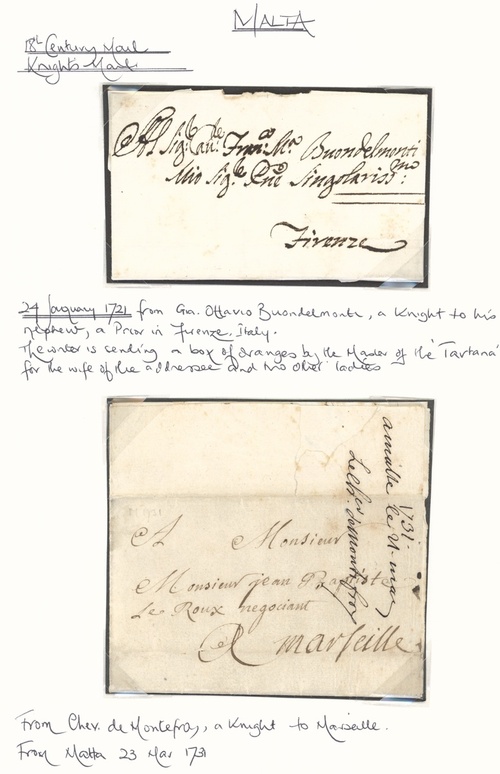 MALTA
18th Century Mail
Knights Mail
Al Sig:re Cau:re Fran:co Ma Buondelmonti
Mio Sig:re Pne Singolariss:mo
Firenze
24 January 1721 from Gia. Ottavio Buondelmonte, a Knight to his
nephew, a Prior in Firenze, Italy.
The writer is sending a box of oranges by the Master of the 'Tartana'
for the wife of the addressee and two other ladies
1731
amalte le mar
Le Ch. de Montefroy
A Monsieur
Monsieur jean Baptiste
Le Roux negociant
A marseille
From Chev. de Montefroy, a Knight to Marseille.
From Malta 23 Mar 1731